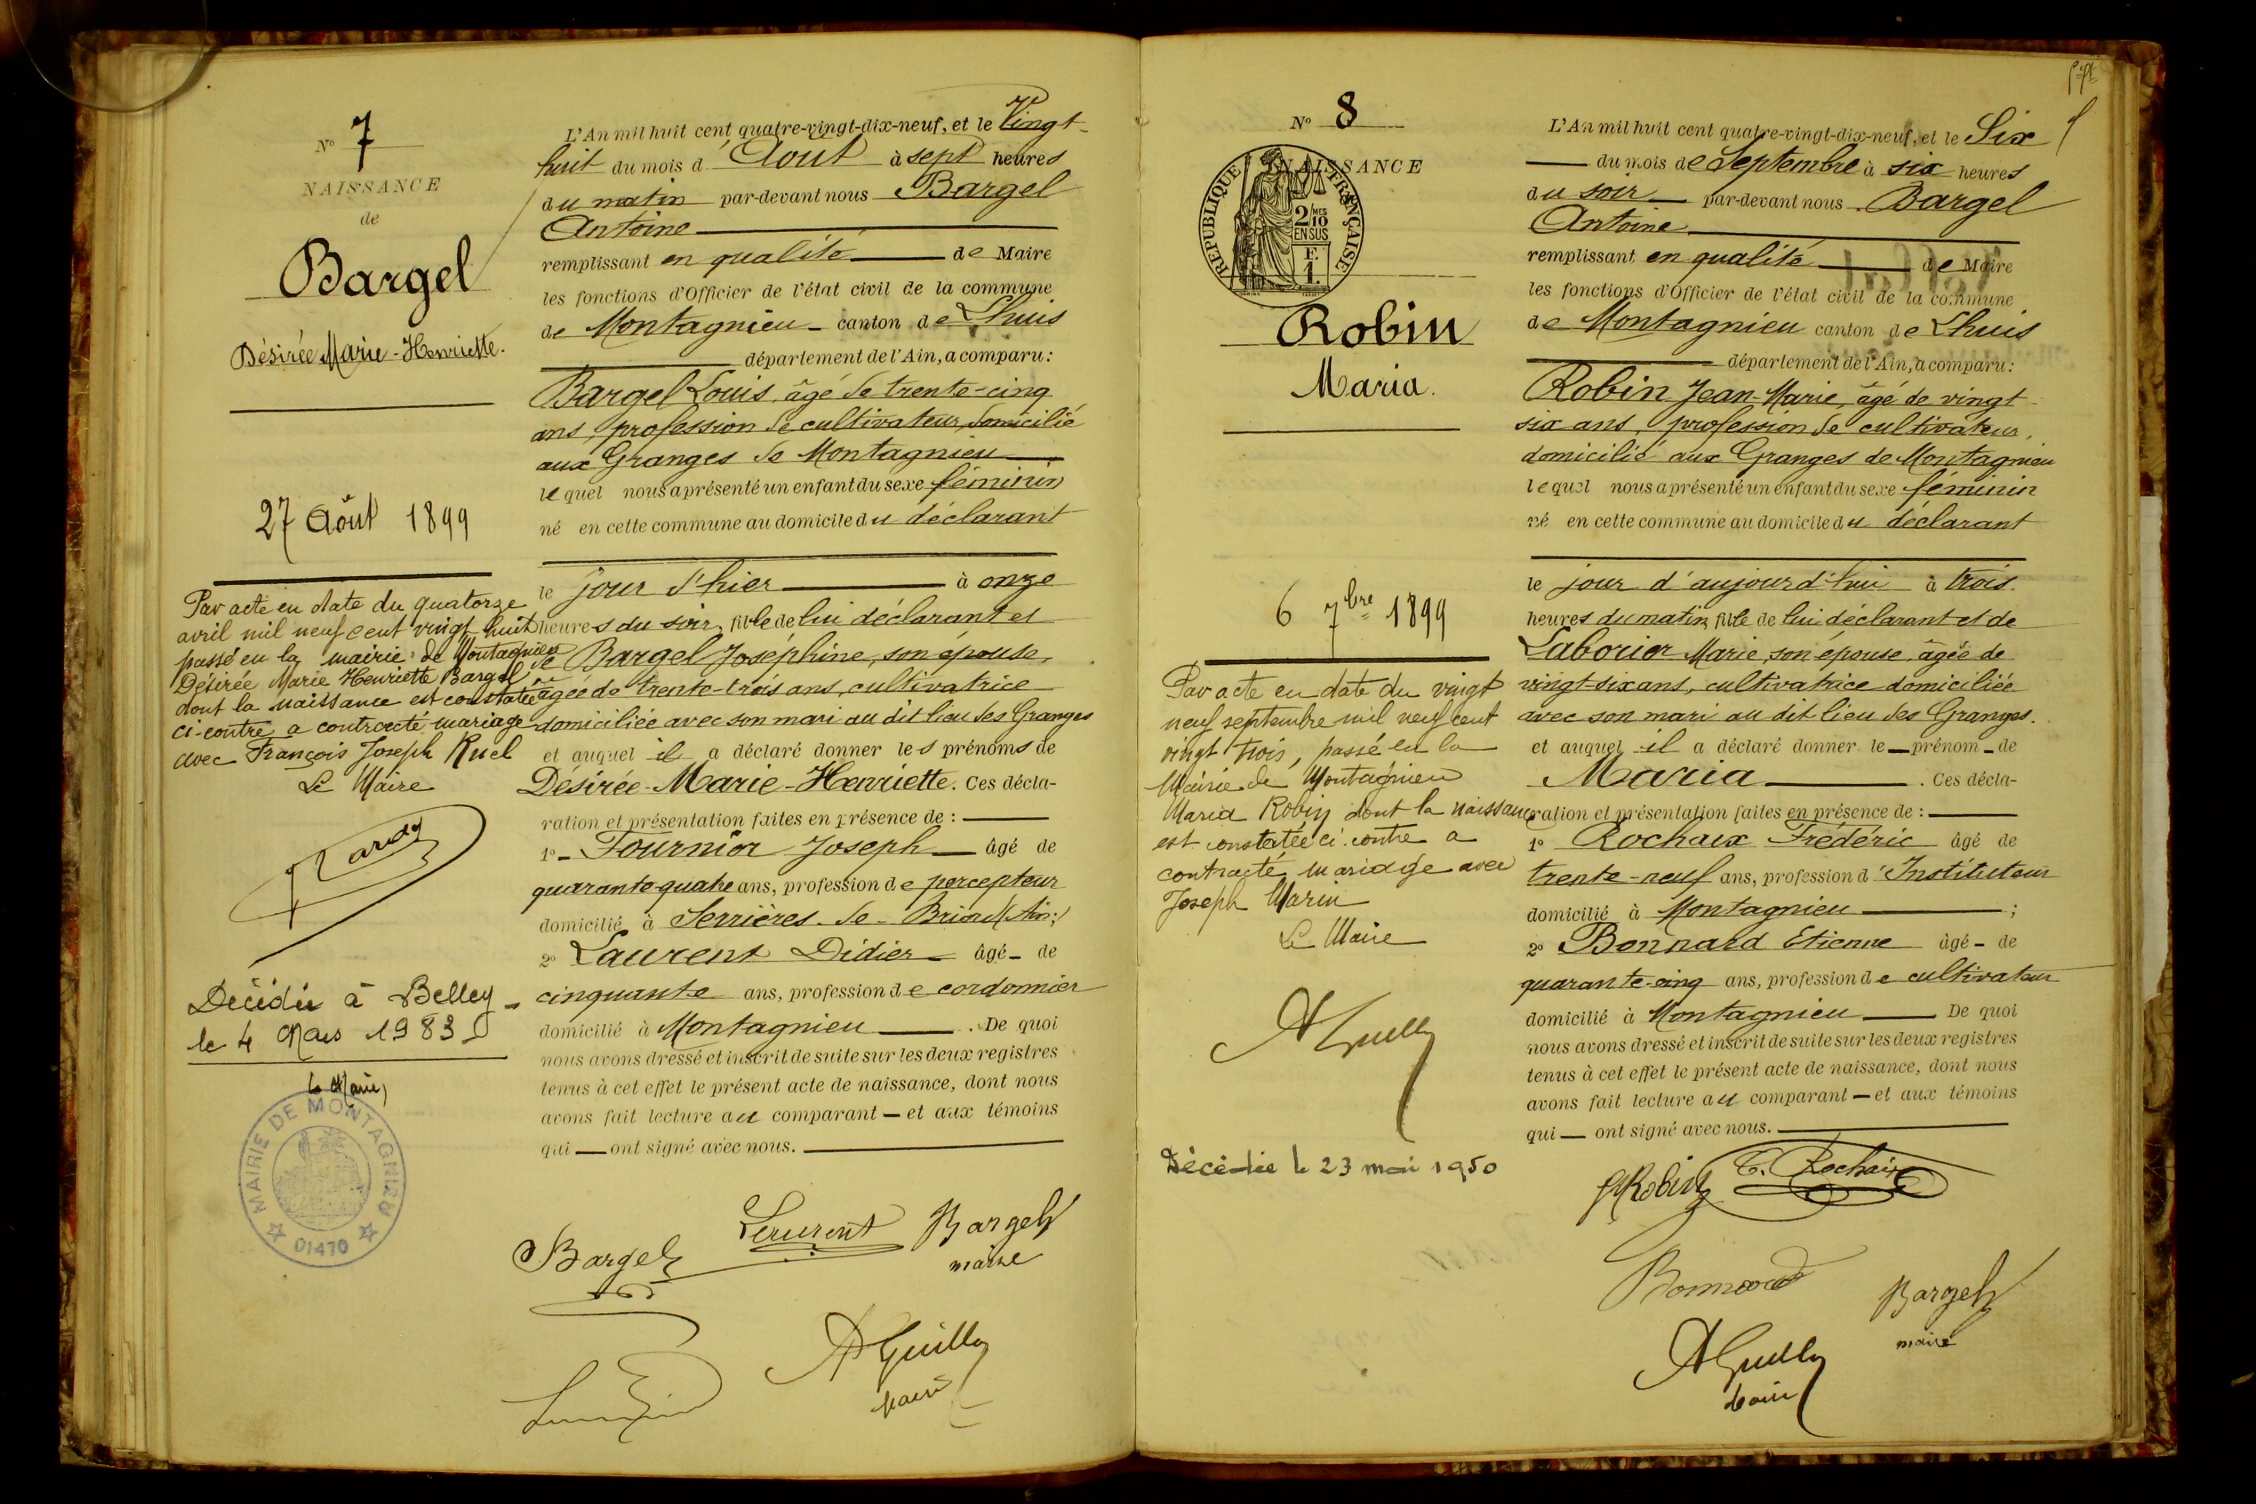 N° 7
NAISSANCE
de
Bargel
Désirée Marie-Henriette.
27 Août 1899
Par acte en date du quatorze
avril mil neuf cent vingt huit
passé en la mairie de Montagnieu
Désirée Marie Henriette Bargel
dont la naissance est constatée
ci-contre a contracté mariage
avec François Joseph Ruel
Le Maire
Décédée à Belley
le 4 Mars 1983
Le Maire,
MAIRIE DE MONTAGNIEU
01470
L'An mil huit cent quatre-vingt-dix-neuf, et le Vingt-
huit du mois d Août à sept heures
du matin par-devant nous Bargel
Antoine
remplissant en qualité de Maire
les fonctions d'Officier de l'état civil de la commune
de Montagnieu canton de Lhuis
département de l'Ain, a comparu:
Bargel Louis, âgé de trente-cinq
ans, profession de cultivateur, domicilié
aux Granges de Montagnieu
lequel nous a présenté un enfant du sexe féminin
né en cette commune au domicile du déclarant
le jour d'hier à onze
heures du soir, fille de lui déclarant et
de Bargel Joséphine, son épouse,
âgée de trente-trois ans, cultivatrice
domiciliée avec son mari au dit lieu des Granges
et auquel il a déclaré donner les prénoms de
Désirée-Marie-Henriette. Ces décla-
ration et présentation faites en présence de :
1° Fournier Joseph âgé de
quarante-quatre ans, profession de percepteur
domicilié à Serrières-de-Briord (Ain);
2° Laurent Didier âgé de
cinquante ans, profession de cordonnier
domicilié à Montagnieu. De quoi
nous avons dressé et inscrit de suite sur les deux registres
tenus à cet effet le présent acte de naissance, dont nous
avons fait lecture au comparant et aux témoins
qui ont signé avec nous.
Bargel
Laurent
Bargel
maire
A Guilly
N° 8
NAISSANCE
REPUBLIQUE FRANÇAISE
2/10 MES
EN SUS
F.
1.
Robin
Maria.
6 7bre 1899
Par acte en date du vingt
neuf septembre mil neuf cent
vingt trois, passé en la
Mairie de Montagnieu
Maria Robin dont la naissance
est constatée ci-contre a
contracté mariage avec
Joseph Marin
Le Maire
A Guilly
Décédée le 23 mai 1950
L'An mil huit cent quatre-vingt-dix-neuf, et le Six
du mois de Septembre à six heures
du soir par-devant nous Bargel
Antoine
remplissant en qualité de Maire
les fonctions d'Officier de l'état civil de la commune
de Montagnieu canton de Lhuis
département de l'Ain, a comparu:
Robin Jean-Marie, âgé de vingt-
six ans, profession de cultivateur,
domicilié aux Granges de Montagnieu
lequel nous a présenté un enfant du sexe féminin
né en cette commune au domicile du déclarant
le jour d'aujourd'hui à trois
heures du matin, fille de lui déclarant et de
Labourier Marie, son épouse, âgée de
vingt-six ans, cultivatrice domiciliée
avec son mari au dit lieu des Granges.
et auquel il a déclaré donner le prénom de
Maria. Ces décla-
ration et présentation faites en présence de :
1° Rochaix Frédéric âgé de
trente-neuf ans, profession d'Instituteur
domicilié à Montagnieu ;
2° Bonnard Etienne âgé de
quarante-cinq ans, profession de cultivateur
domicilié à Montagnieu De quoi
nous avons dressé et inscrit de suite sur les deux registres
tenus à cet effet le présent acte de naissance, dont nous
avons fait lecture au comparant et aux témoins
qui ont signé avec nous.
Robin
Rochaix
Bonnard
Bargel
maire
A Guilly